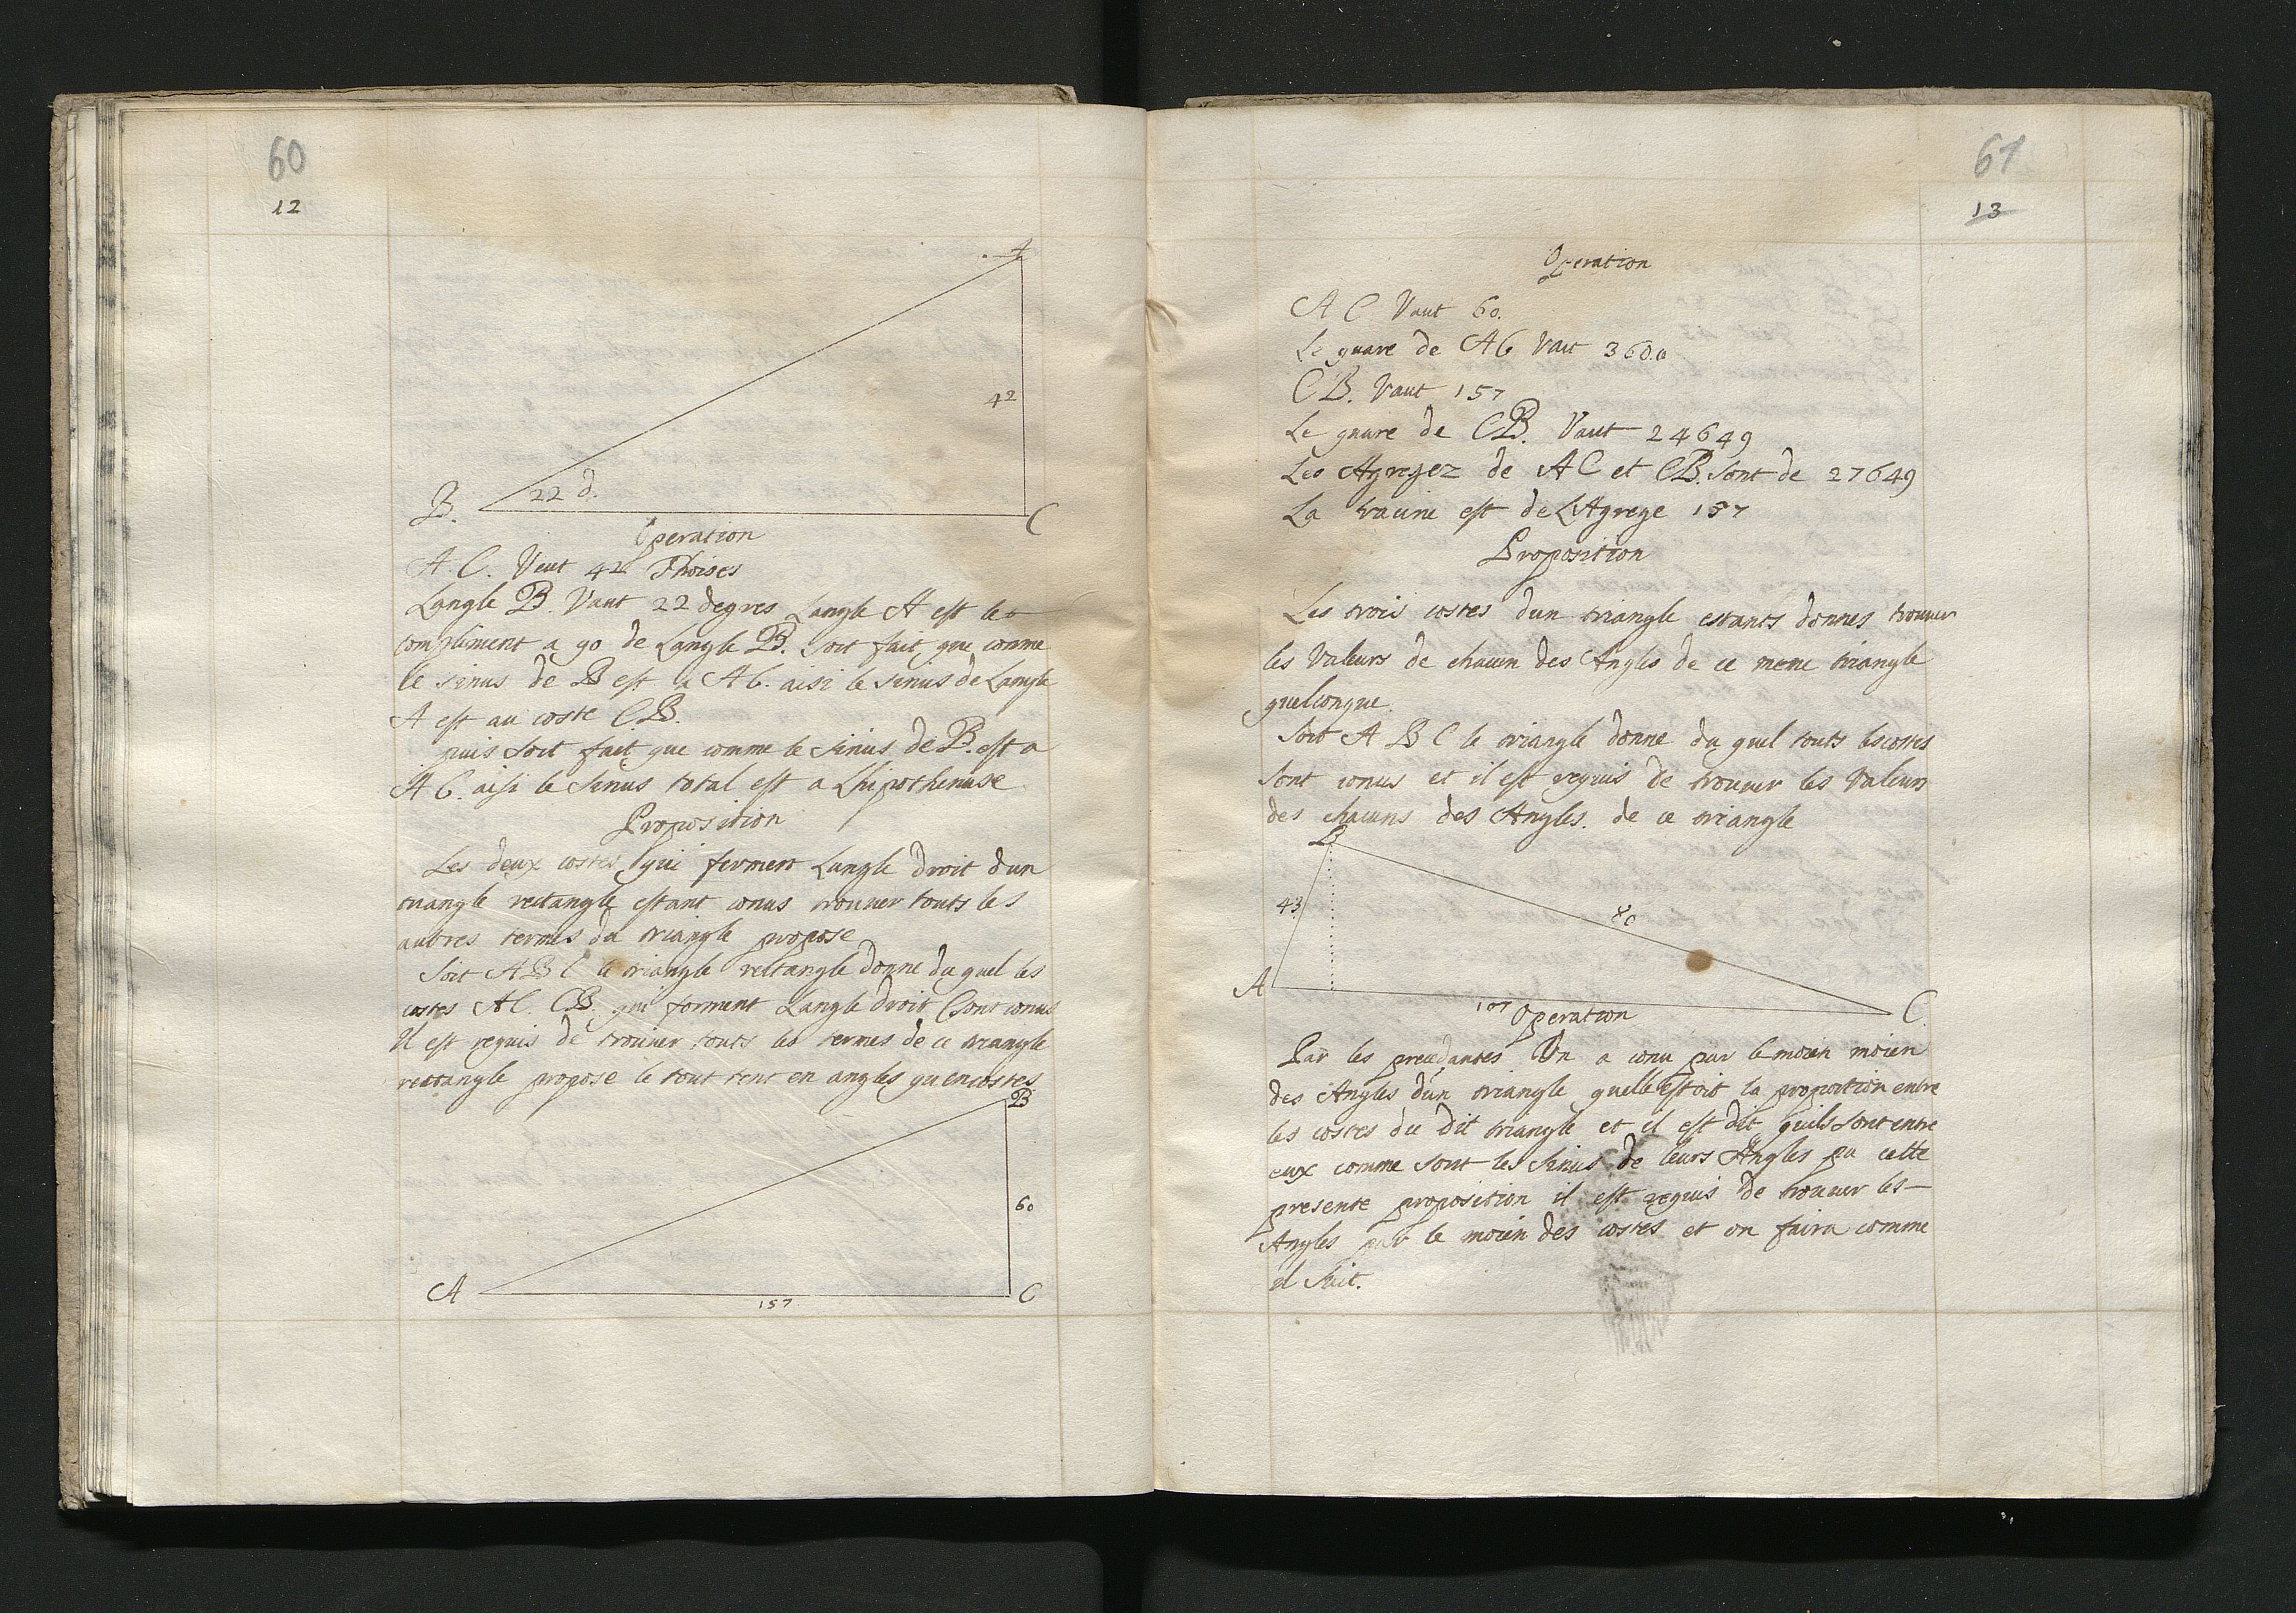 60
12
A
42
22 d.
B.
C
Operation
A. C. Vaut 42 Thoises
Langle B. Vaut 22 degres Langle A est le
compliment a 90 de Langle B. soit fait que comme
le sinus de B est a AC. aisi le sinus de Langle
A est au coste CB.
puis soit fait que comme le sinus de B. est a
A C. aisi le sinus total est a Lhipothenuse
Proposition
Les deux costes qui forment Langle droit dun
triangle rectangle estant conus trouuer touts les
autres termes du triangle propose
Soit A B C le triangle rectangle donne du quel les
costes AC. CB. qui forment Langle droit C sont conus
Il est requis de trouuer touts les termes de ce triangle
rectangle propose le tout tent en angles qu en costes
B
60
A
157
C
61
13
Operation
A C Vaut 60.
Le quare de AC Vaut 3600
C B. Vaut 157
Le quare de CB. Vaut 24649
Les Agregez de A C et CB. sont de 27649
La racine est de LAgrege 157
Proposition
Les trois costes dun triangle estants donnes trouuer
les Valeurs de chacun des Angles de ce meme triangle
quelconque.
Soit A B C le triangle donne du quel touts les costes
sont conus et il est requis de trouuer les Valeurs
des chacuns des Angles. de ce triangle
B
43
80
A
107
C.
Operation
Par les precedantes On a conu par le moien moien
des Angles dun triangle quelle estoit la proportion entre
les costes du dit triangle et il est dit quils sont entre
eux comme sont les sinus de leurs Angles pa cette
presente proposition il est requis de trouuer les
Angles par le moien des costes et on faira comme
il suit.